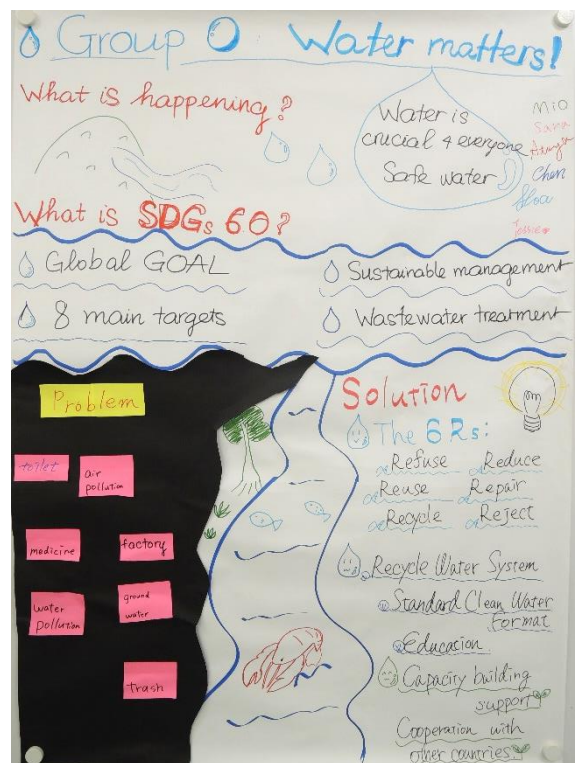 Group O Water matters!
What is happening?
Water is
crucial 4 everyone
Safe water
Mio
Sana
Chen
What is SDGs 6O?
Global GOAL
8 main targets
Sustainable management
Wastewater treatment
Problem
toilet
air
pollution
medicine
factory
water
pollution
ground
water
trash
Solution
The 6Rs:
Refuse Reduce
Reuse Repair
Recycle Reject
Recycle Water System
Standard Clean Water
Format
Education
Capacity building
support
Cooperation with
other countries